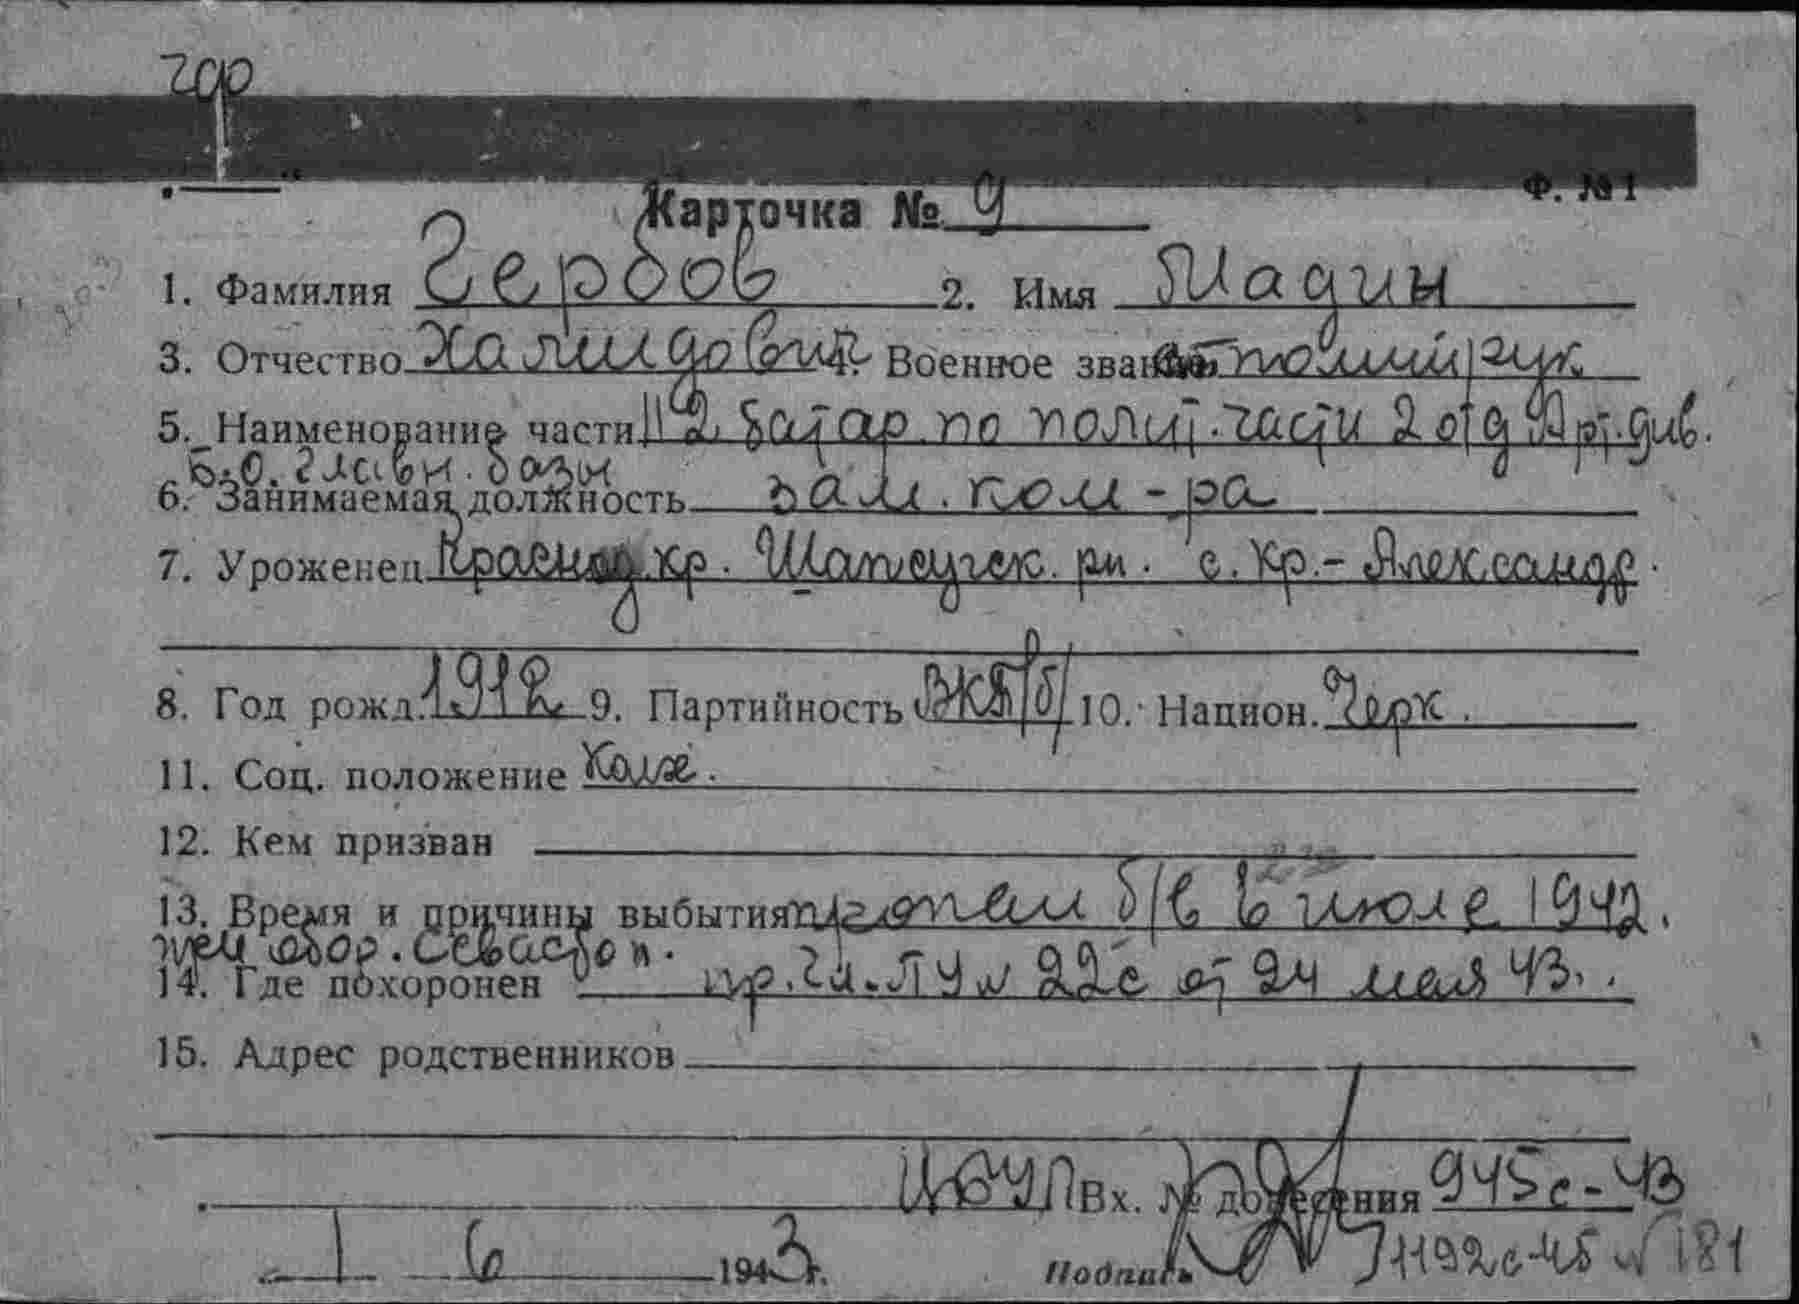 Ф. №1
Карточка № 9
1. Фамилия Гербов 2. Имя Мадин
3. Отчество Халидович 4. Военное звание политрук
5. Наименование части 112 батар. по полит. части 2 отд Арт. див.
Б.О. главн. базы
6. Занимаемая должность зам. ком-ра
7. Уроженец Краснод. кр. Шапсугск. рн. с. Кр.-Александр.
8. Год рожд. 1912 9. Партийность ВКП/б/ 10. Национ. Черк.
11. Соц. положение Колх.
12. Кем призван
13. Время и причины выбытия пропал б/в в июле 1942.
при обор. Севастоп.
14. Где похоронен пр. Гл. ПУ № 22с от 24 мая 43.
15. Адрес родственников
Вх. № донесения 945с-43
1 6 1943 г. Подпись 11192с-45 № 181